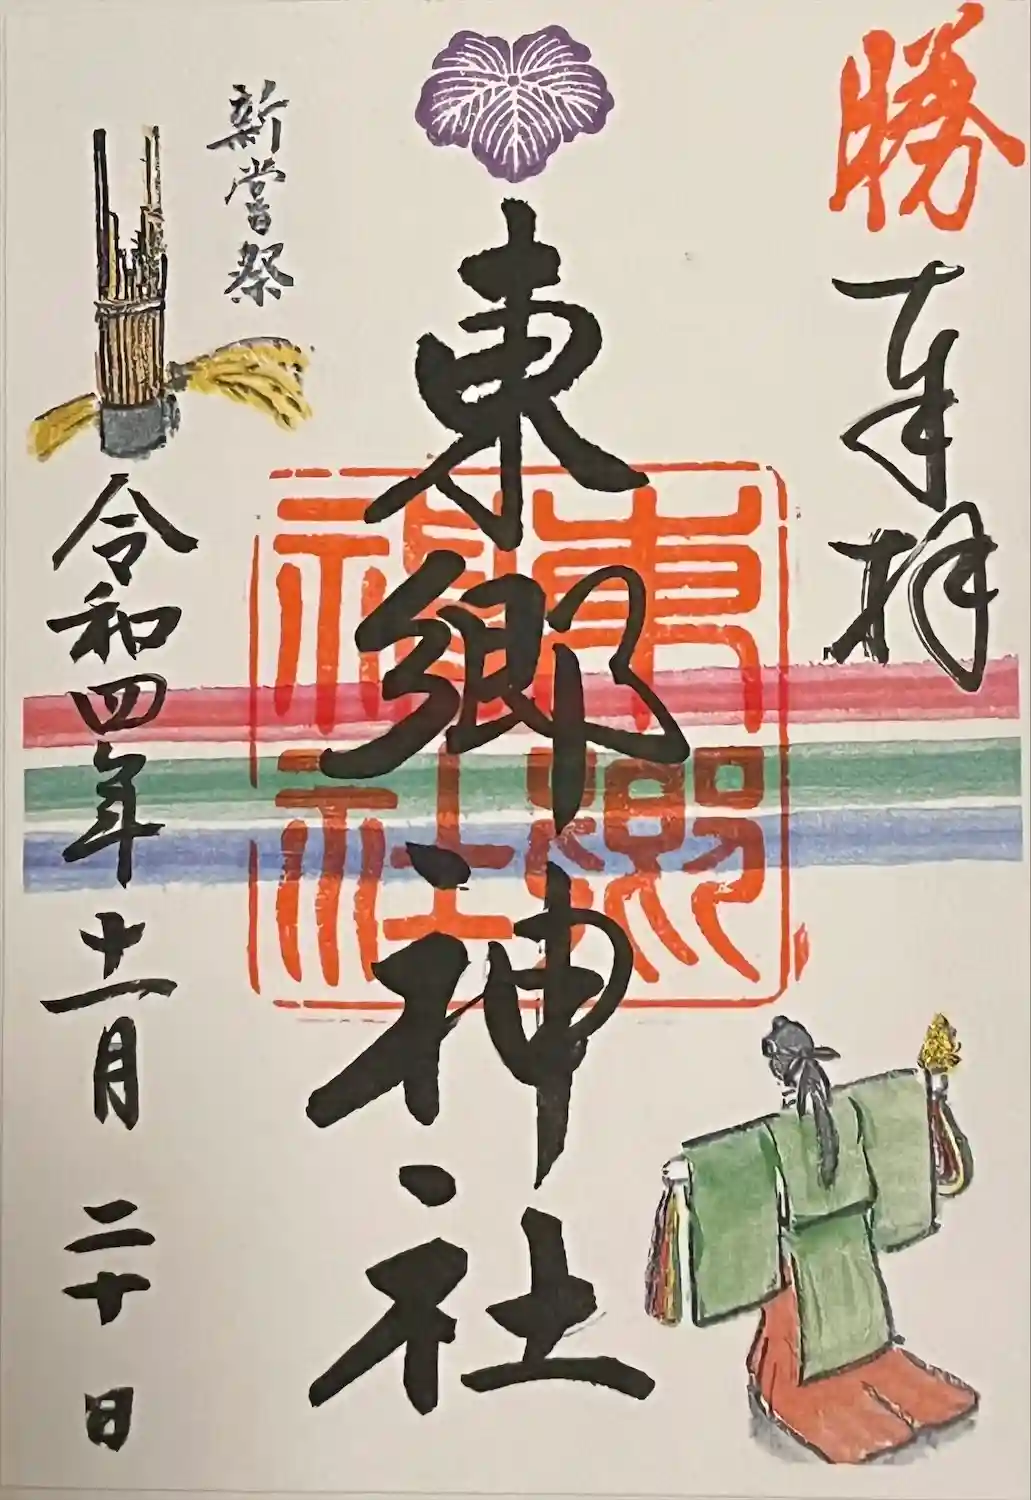 勝
奉拝
東郷神社
東郷神社
新嘗祭
令和四年十一月二十日